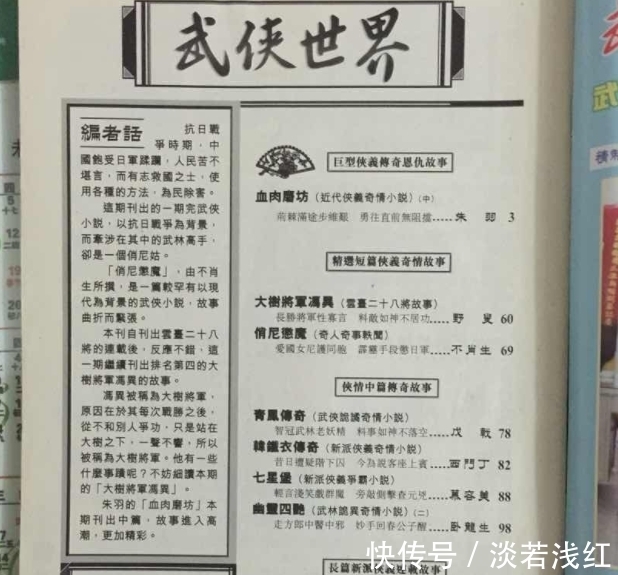 武俠世界
編者話
抗日戰
爭時期，中
國飽受日軍蹂躪，人民苦不
堪言，而有志救國之士，使
用各種的方法，為民除害。
這期刊出的一期完武俠
小說，以抗日戰爭為背景，
而牽涉在其中的武林高手，
卻是一個俏尼姑。
「俏尼懲魔」，由不肖
生所撰，是一篇較罕有以現
代為背景的武俠小說，故事
曲折而緊張。
本刊自刊出雲臺二十八
將的連載後，反應不錯，這
一期繼續刊出排名第四的大
樹將軍馮異的故事。
馮異被稱為大樹將軍，
原因在於其每次戰勝之後，
從不和別人爭功，只是站在
大樹之下，一聲不響，所以
被稱為大樹將軍。他有一些
什麼事蹟呢？不妨細讀本期
的「大樹將軍馮異」。
朱羽的「血肉磨坊」本
期刊出中篇，故事進入高
潮，更加精彩。
巨型俠義傳奇恩仇故事
血肉磨坊（近代俠義奇情小說）（中）
荊棘滿途步維艱 勇往直前無阻擋……朱 羽 3
精選短篇俠義奇情故事
大樹將軍馮異（雲臺二十八將故事）
長勝將軍性寡言 料敵如神不居功……野 叟 60
俏尼懲魔（奇人奇事軼聞）
愛國女尼護同胞 霹靂手段懲日軍……不肖生 69
俠情中篇傳奇故事
青鳳傳奇（武俠詭譎奇情小說）
智冠武林老妖精 料事如神不落空……戊 戟 78
韓鐵衣傳奇（新派俠義奇情小說）
昔日遭疑階下囚 今為說客座上賓……西門丁 82
七星堡（新派俠義爭霸小說）
輕言淺笑戲群魔 旁敲側擊查元兇……慕容美 88
幽靈四艷（武林詭異奇情小說）（二）
走方郎中醫中邪 妙手回春公子醒……臥龍生 98
長篇新派俠義連載故事
快传号 / 淡若浅红